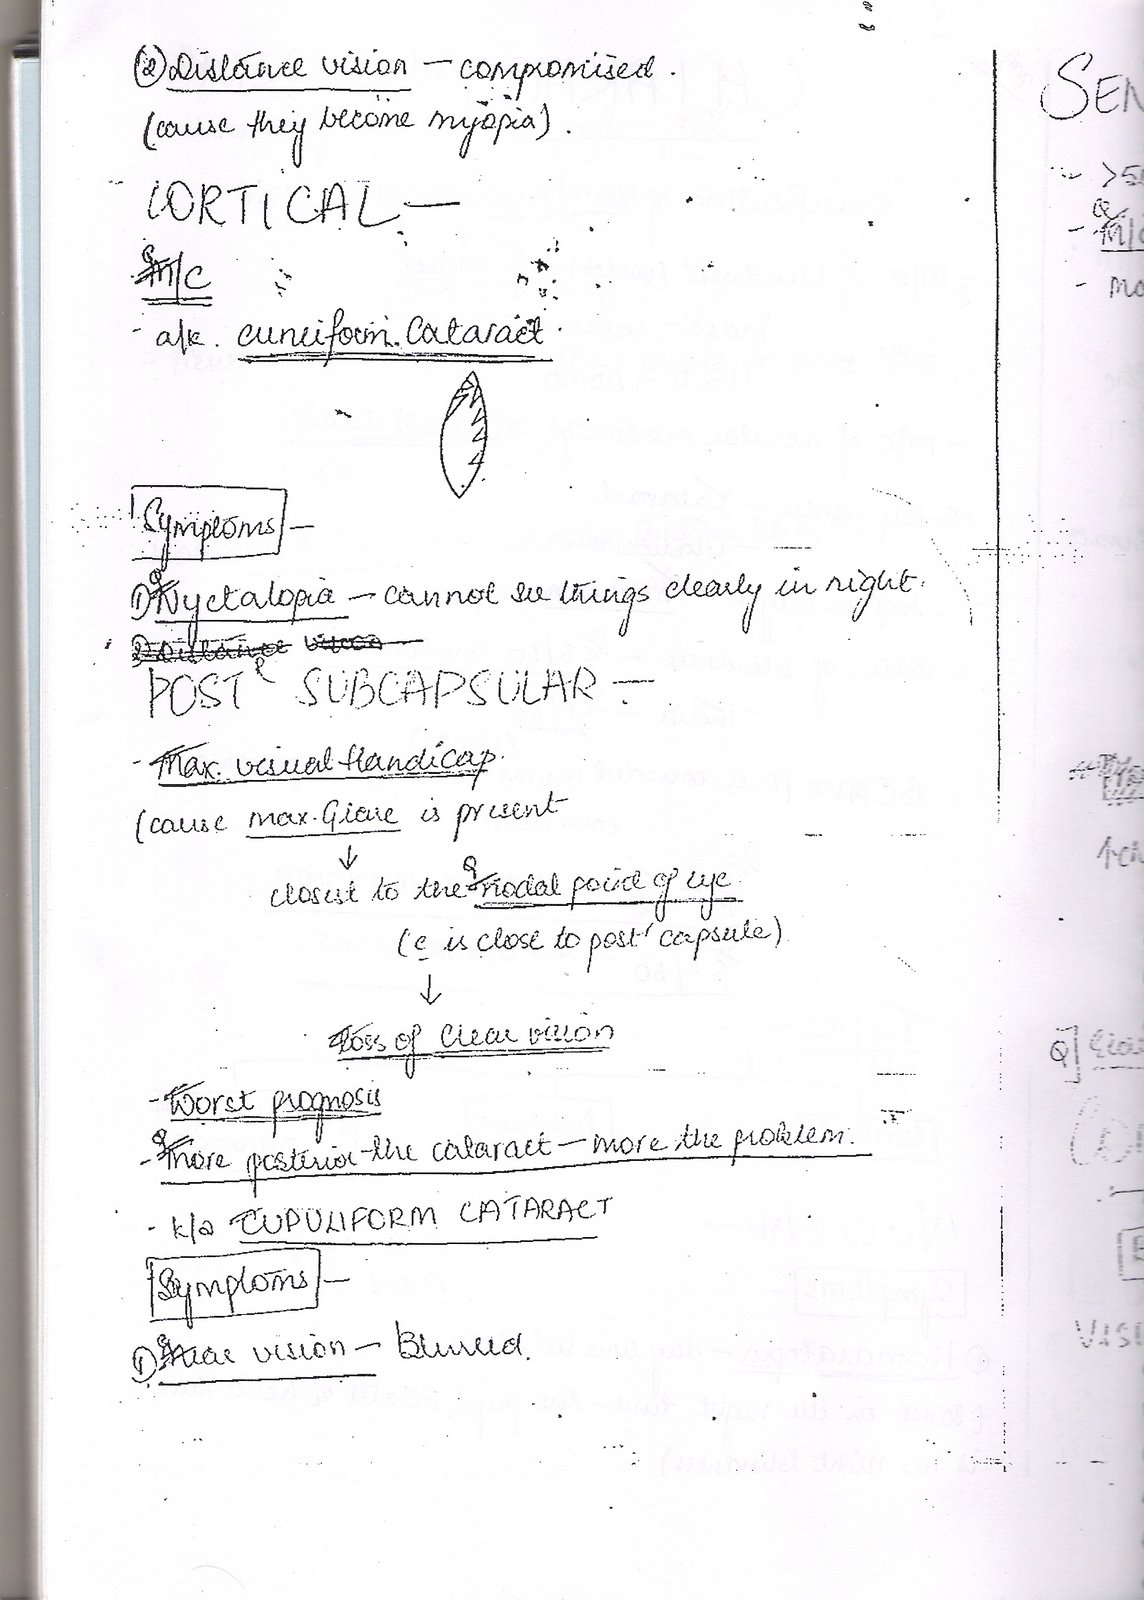 ② Distance vision — compromised.
(cause they become myopia).
CORTICAL —
Q M/C
- a/k. cuneiform. Cataract.
Symptoms —
① Q Nyctalopia — cannot see things clearly in night.
2) Distance vision
POSTʳ SUBCAPSULAR —
- Max. visual Handicap.
(cause max. Glare is present
↓
closest to the Q nodal point of eye.
(c is close to postʳ capsule)
↓
Loss of clear vision
- Worst prognosis
- Q More posterior the cataract — more the problem.
- k/a CUPULIFORM CATARACT
Symptoms —
① Q Near vision — Blurred.
SEN
- >5
Q
- M/C
- mo
Q]
VIS